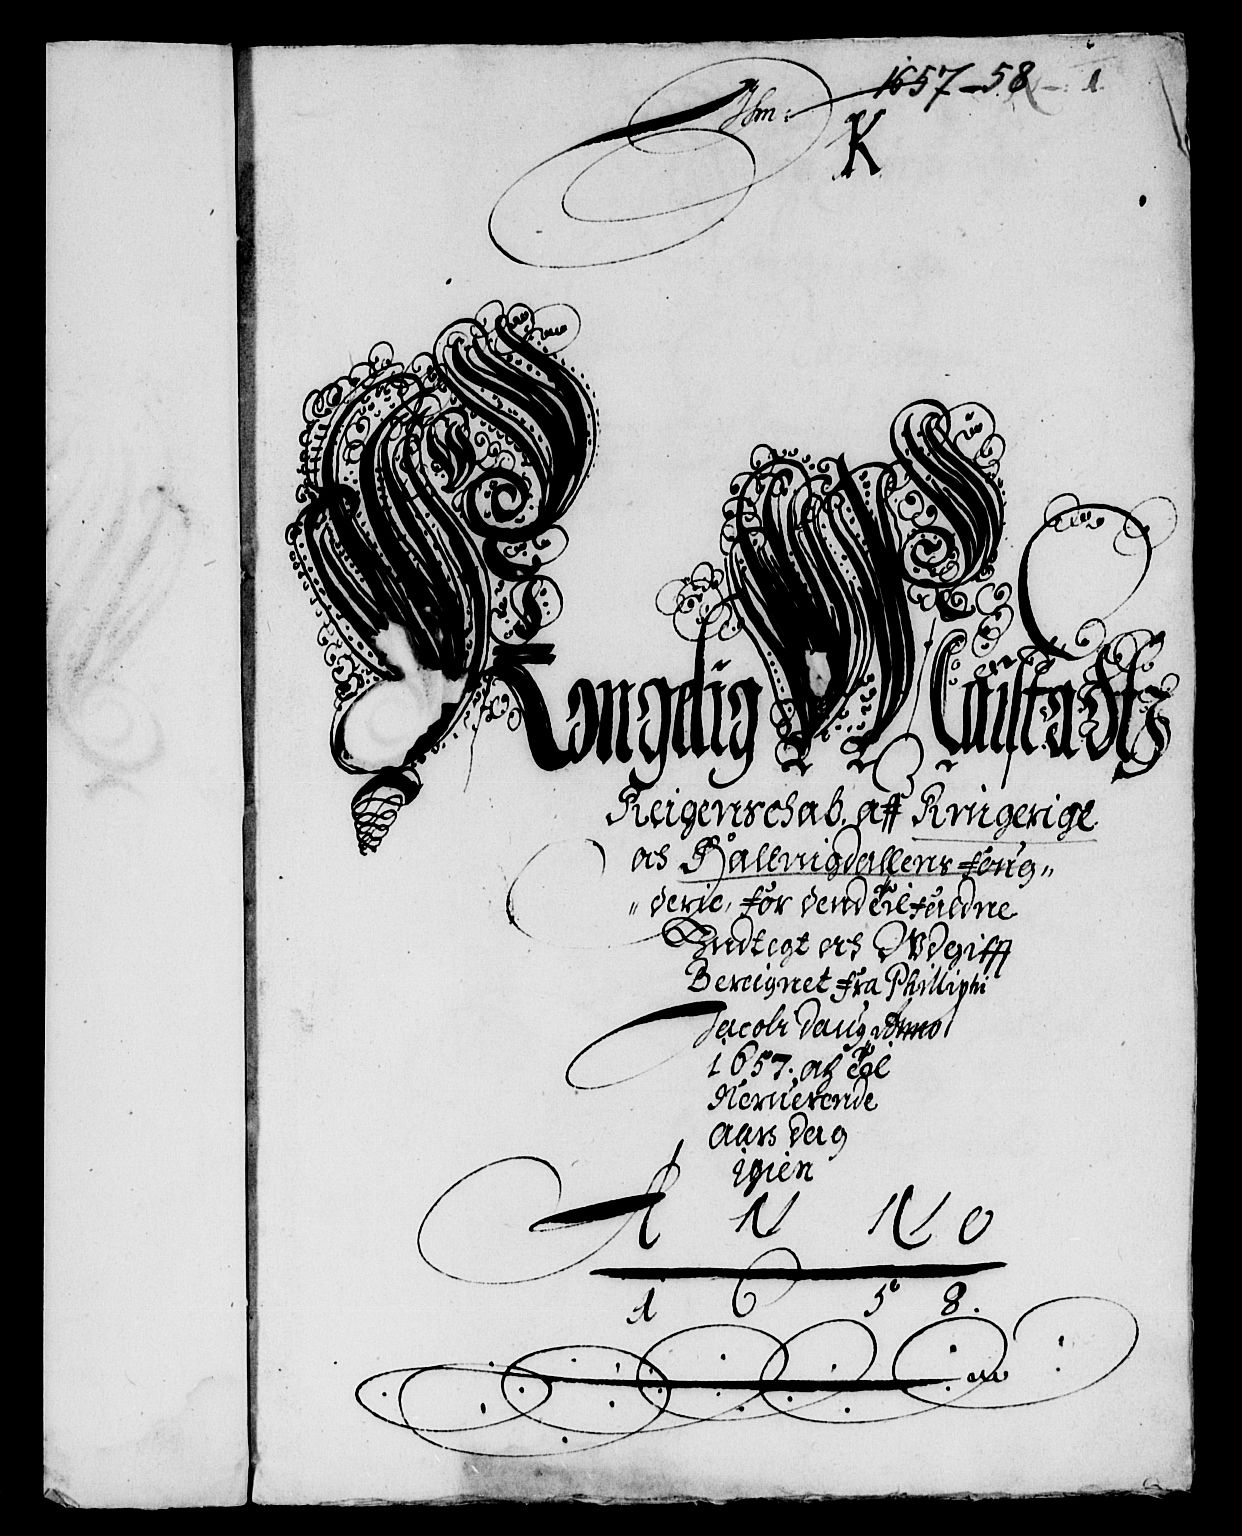 1657-58 1
K
Kongelig Maiistadtz
Reigenschab, aff Ringerige
och Hallingdallens foug„
„derie, for dend tilfaldne
Indtegt och Wdgifft
Bereignet fra Philliphi
Jacobi daug Anno
1657. och til
Neruerende
aars dag
igien
ANNO
1658.